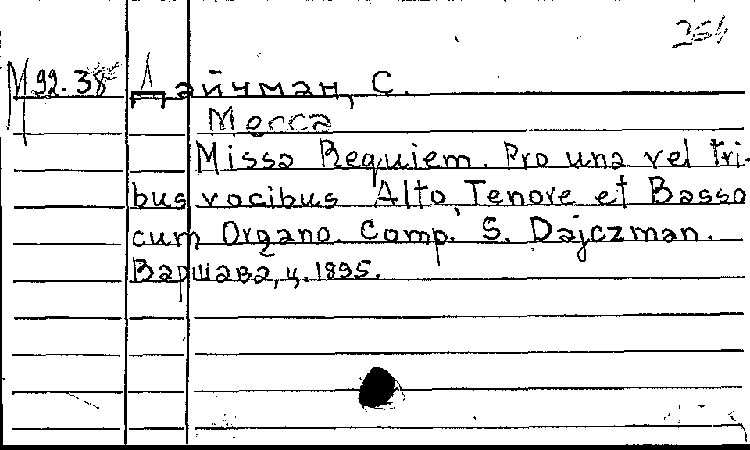 264
М 92.38 Дайчман, С.
Месса
Missa Requiem. Pro una vel tri-
bus vocibus Alto, Tenore et Basso
cum Organo. Comp. S. Dajczman.
Варшава, ц. 1895.